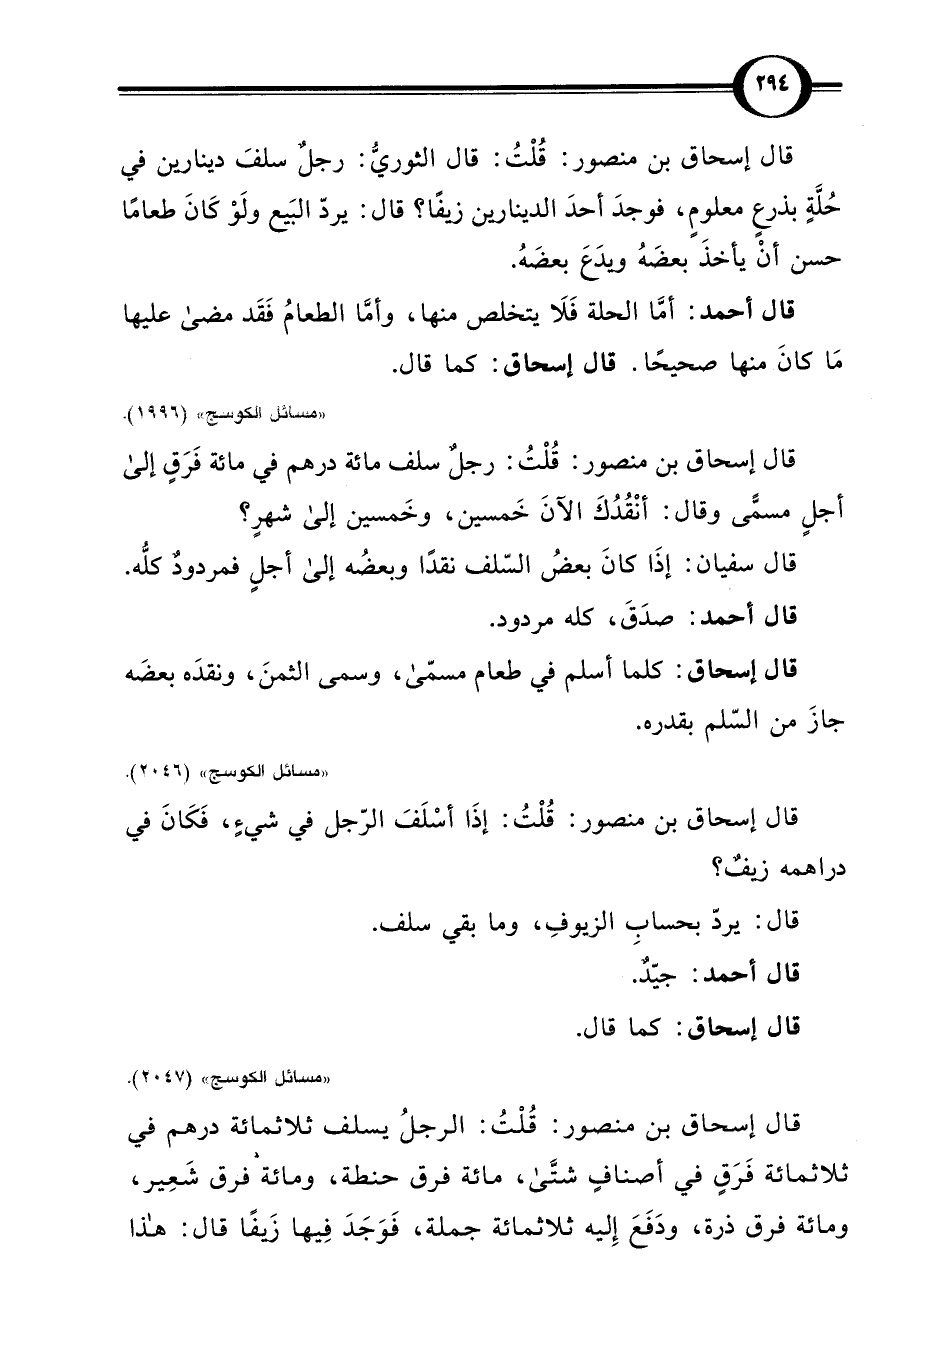 ٢٩٤
قال إسحاق بن منصور: قُلْتُ: قال الثوريُّ: رجلٌ سلفَ دينارين في
حُلَّةٍ بذرعٍ معلومٍ، فوجدَ أحدَ الدينارين زيفًا؟ قال: يردّ البَيع ولَوْ كَانَ طعامًا
حسن أنْ يأخذَ بعضَهُ ويدَعَ بعضَهُ.
قال أحمد: أمَّا الحلة فَلَا يتخلص منها، وأمَّا الطعامُ فَقَد مضىٰ عليها
مَا كانَ منها صحيحًا. قال إسحاق: كما قال.
«مسائل الكوسج» (١٩٩٦).
قال إسحاق بن منصور: قُلْتُ: رجلٌ سلف مائة درهم في مائة فَرَقٍ إلىٰ
أجلٍ مسمًّى وقال: أنْقُدُكَ الآنَ خَمسين، وخَمسين إلىٰ شهرٍ؟
قال سفيان: إذَا كانَ بعضُ السّلف نقدًا وبعضُه إلىٰ أجلٍ فمردودٌ كلُّه.
قال أحمد: صدَقَ، كله مردود.
قال إسحاق: كلما أسلم في طعام مسمّىٰ، وسمى الثمنَ، ونقدَه بعضَه
جازَ من السّلم بقدره.
«مسائل الكوسج» (٢٠٤٦).
قال إسحاق بن منصور: قُلْتُ: إذَا أسْلَفَ الرّجل في شيءٍ، فَكَانَ في
دراهمه زيفٌ؟
قال: يردّ بحسابِ الزيوفِ، وما بقي سلف.
قال أحمد: جيّدٌ.
قال إسحاق: كما قال.
«مسائل الكوسج» (٢٠٤٧).
قال إسحاق بن منصور: قُلْتُ: الرجلُ يسلف ثلاثمائة درهم في
ثلاثمائة فَرَقٍ في أصنافٍ شتَّىٰ، مائة فرق حنطة، ومائة فرق شَعِير،
ومائة فرق ذرة، ودَفَعَ إِليه ثلاثمائة جملة، فَوَجَدَ فِيها زَيفًا قال: هذا